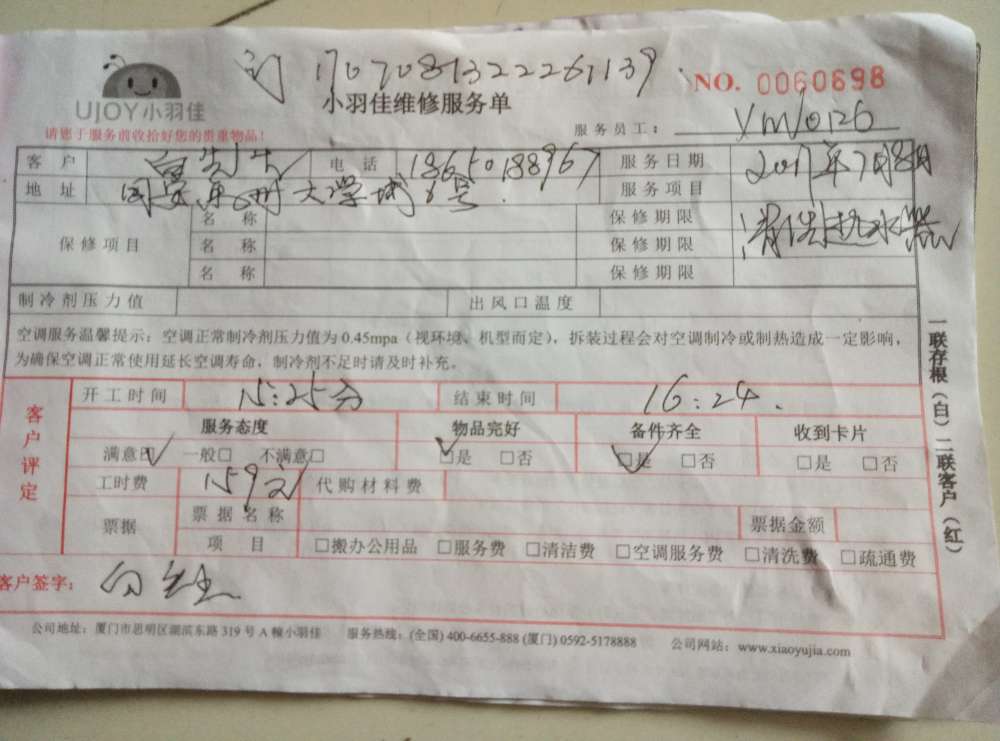 17070813222261139 NO. 0060698
UJOY小羽佳 小羽佳维修服务单
请您于服务前收拾好您的贵重物品！ 服务员工：
客 户 电 话 18650188967 服务日期 2017年7月8日
地 址 大学城 号 服务项目 清洗热水器
保修项目 名 称 保修期限
名 称 保修期限
名 称 保修期限
制冷剂压力值 出风口温度
空调服务温馨提示：空调正常制冷剂压力值为 0.45mpa（视环境、机型而定），拆装过程会对空调制冷或制热造成一定影响，
为确保空调正常使用延长空调寿命，制冷剂不足时请及时补充。
一联存根（白）二联客户（红）
客户评定
开工时间 15:25分 结束时间 16:24.
服务态度 物品完好 备件齐全 收到卡片
满意☑ 一般□ 不满意□ ☑是 □否 ☑是 □否 □是 □否
工时费 159元 代购材料费
票据 票据名称 票据金额
项 目 □搬办公用品 □服务费 □清洁费 □空调服务费 □清洗费 □疏通费
客户签字：
公司地址：厦门市思明区湖滨东路 319 号 A 幢小羽佳 服务热线：(全国) 400-6655-888 (厦门) 0592-5178888 公司网站：www.xiaoyujia.com